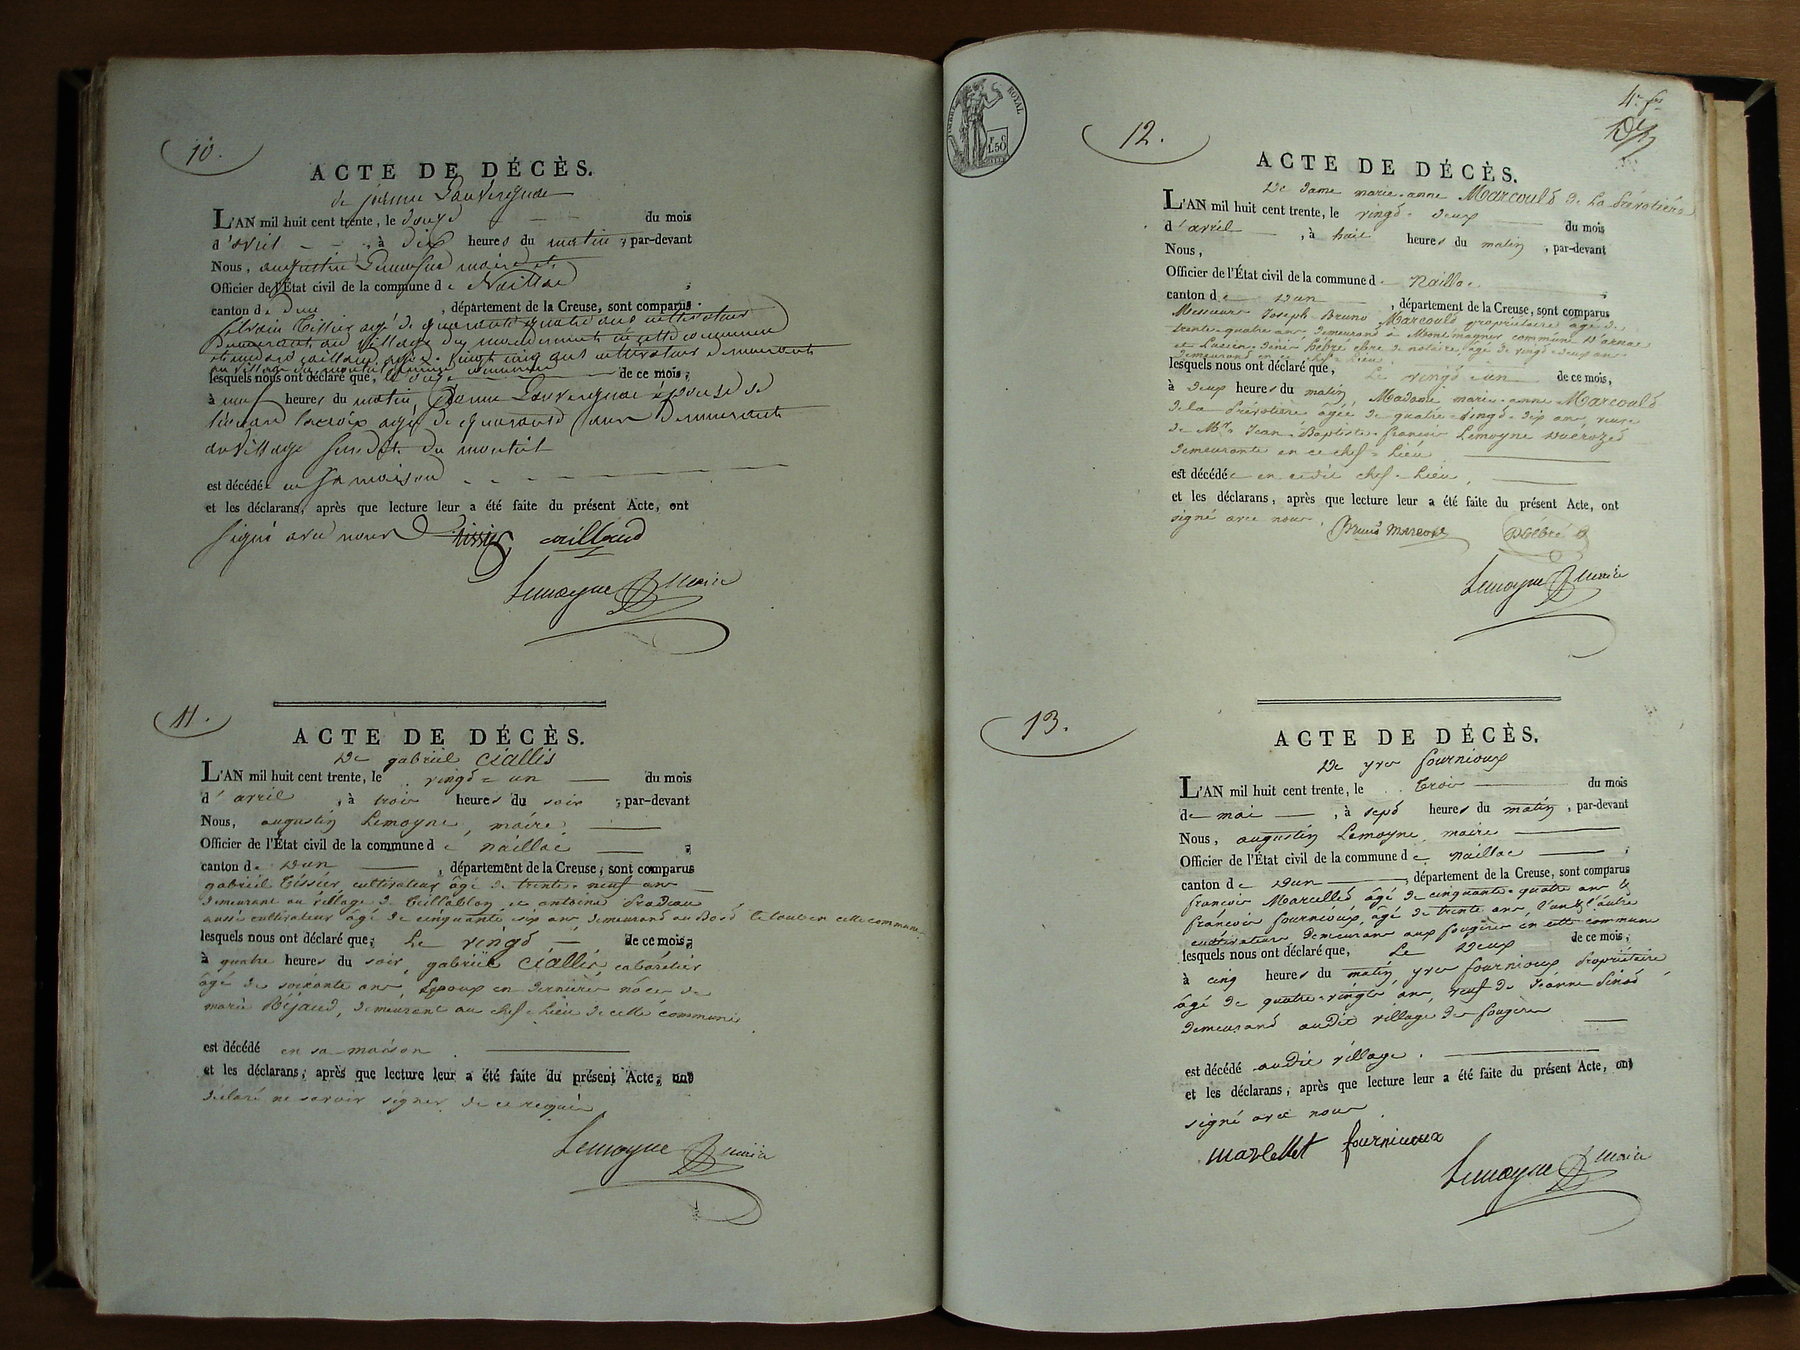 10.
ACTE DE DÉCÈS.
de jeanne Lauvergnat
L'AN mil huit cent trente, le douze du mois
d'avril, à dix heures du matin, par-devant
Nous, augustin Lemoyne maire et
Officier de l'État civil de la commune de Naillac
canton de dun, département de la Creuse, sont comparus
silvain tissier agé de quarante quatre ans cultivateur
demeurant au village du
agé vingt cinq ans cultivateur demeurant
au village du
lesquels nous ont déclaré que, le douze de ce mois,
à neuf heures du matin jeanne Lauvergnat épouse de
léonard lacroix agé de quarante ans demeurant
au village susdit du montut
est décédé en sa maison
et les déclarans, après que lecture leur a été faite du présent Acte, ont
signé avec nous tissier caillaud
Lemoyne maire
11.
ACTE DE DÉCÈS.
De gabriel Ciallis
L'AN mil huit cent trente, le vingt-un du mois
d'avril, à trois heures du soir, par-devant
Nous, augustin Lemoyne, maire,
Officier de l'État civil de la commune de naillac
canton de Dun, département de la Creuse, sont comparus
gabriel tissier, cultivateur âgé de trente-neuf ans
demeurant au village de et antoine Pradeau
aussi cultivateur âgé de cinquante six ans, demeurant au Bord le tout en cette commune
lesquels nous ont déclaré que, Le vingt de ce mois,
à quatre heures du soir, gabriel Ciallis, cabaretier
âgé de soixante ans, Epoux en dernières nôces de
marie Béjaud, demeurant au chef-Lieu de cette commune
est décédé en sa maison.
et les déclarans, après que lecture leur a été faite du présent Acte, ont
déclaré ne savoir signer de ce requis
Lemoyne maire
ROYAL
1.50
4e fos
12.
ACTE DE DÉCÈS.
De Dame marie-anne Marcould de La Prévotière
L'AN mil huit cent trente, le vingt-deux du mois
d'avril, à huit heures du matin, par-devant
Nous,
Officier de l'État civil de la commune de Naillac
canton de Dun, département de la Creuse, sont comparus
Messieurs Joseph-Bruno Marcould propriétaire âgé de
trente-quatre ans demeurant à Montmagner commune d'arnac
et Lucien-Denis Débré clerc de notaire, âgé de vingt-deux ans
demeurant en ce chef-Lieu
lesquels nous ont déclaré que, Le vingt-un de ce mois,
à deux heures du matin, Madame marie-anne Marcould
de la Prévotière âgée de quatre-vingt-dix ans, veuve
de Mr. Jean-Baptiste-françois Lemoyne
demeurante en ce chef-Lieu
est décédée en cedit chef-Lieu,
et les déclarans, après que lecture leur a été faite du présent Acte, ont
signé avec nous. Bruno Marcould Débré
Lemoyne maire
13.
ACTE DE DÉCÈS.
De yves fournioux
L'AN mil huit cent trente, le trois du mois
de mai, à sept heures du matin, par-devant
Nous, augustin Lemoyne, maire
Officier de l'État civil de la commune de naillac
canton de Dun, département de la Creuse, sont comparus
françois Marcellet, âgé de cinquante-quatre ans &
françois fournioux, âgé de trente ans, l'un & l'autre
cultivateurs demeurans aux fougères en cette commune
lesquels nous ont déclaré que, Le Deux de ce mois,
à cinq heures du matin, yves fournioux Propriétaire
âgé de quatre-vingts ans, veuf de Jeanne Pinot
demeurant audit village des fougères
est décédé audit village.
et les déclarans, après que lecture leur a été faite du présent Acte, ont
signé avec nous.
marcellet fourniouxx
Lemoyne maire